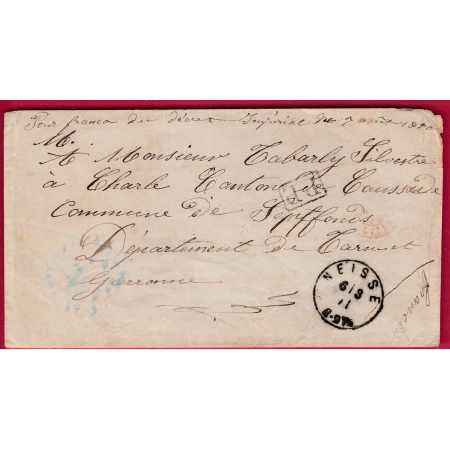 Pour franco du décret Impérial du 7 août 1870
M.
A Monsieur Tabarly Silvestre
à Charle Canton Caussade
PD
Commune de Septfonds
Département de Tarn et
Garronne
NEISSE
11